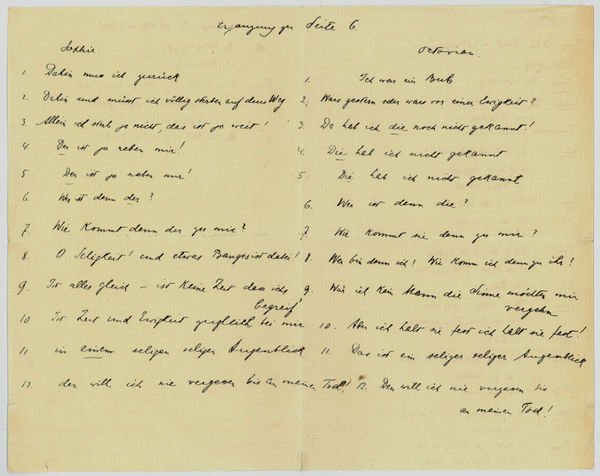 Ergänzung zu Seite 6.
Sophie.
1. Dahin muss ich zurück
2. Dahin und müsst ich völlig sterben auf dem Weg
3. Allein ich sterb ja nicht, das ist ja weit!
4. Der ist ja neben mir!
5. Der ist ja neben mir!
6. Wer ist denn der?
7. Wie kommt denn der zu mir?
8. O Seligkeit! und etwas Banges ist dabei!
9. Ist alles gleich – ist keine Zeit dass ichs
begreif'
10. Ist Zeit und Ewigkeit zugleich bei mir
11. in einem seligen seligen Augenblick
12. den will ich nie vergessen bis an meinen Tod!
Octavian.
1. Ich war ein Bub
2. Wars gestern oder wars vor einer Ewigkeit?
3. Da hab ich die noch nicht gekannt!
4. Die hab ich nicht gekannt
5. Die hab ich nicht gekannt
6. Wer ist denn die?
7. Wie kommt sie denn zu mir?
8. Wer bin denn ich! Wie komm ich denn zu ihr!
9. Wär ich kein Mann die Sinne möchten mir
vergehn
10. Aber ich halt sie fest ich halt sie fest!
11. Das ist ein seliger seliger Augenblick
12. Den will ich nie vergessen bis
an meinen Tod!